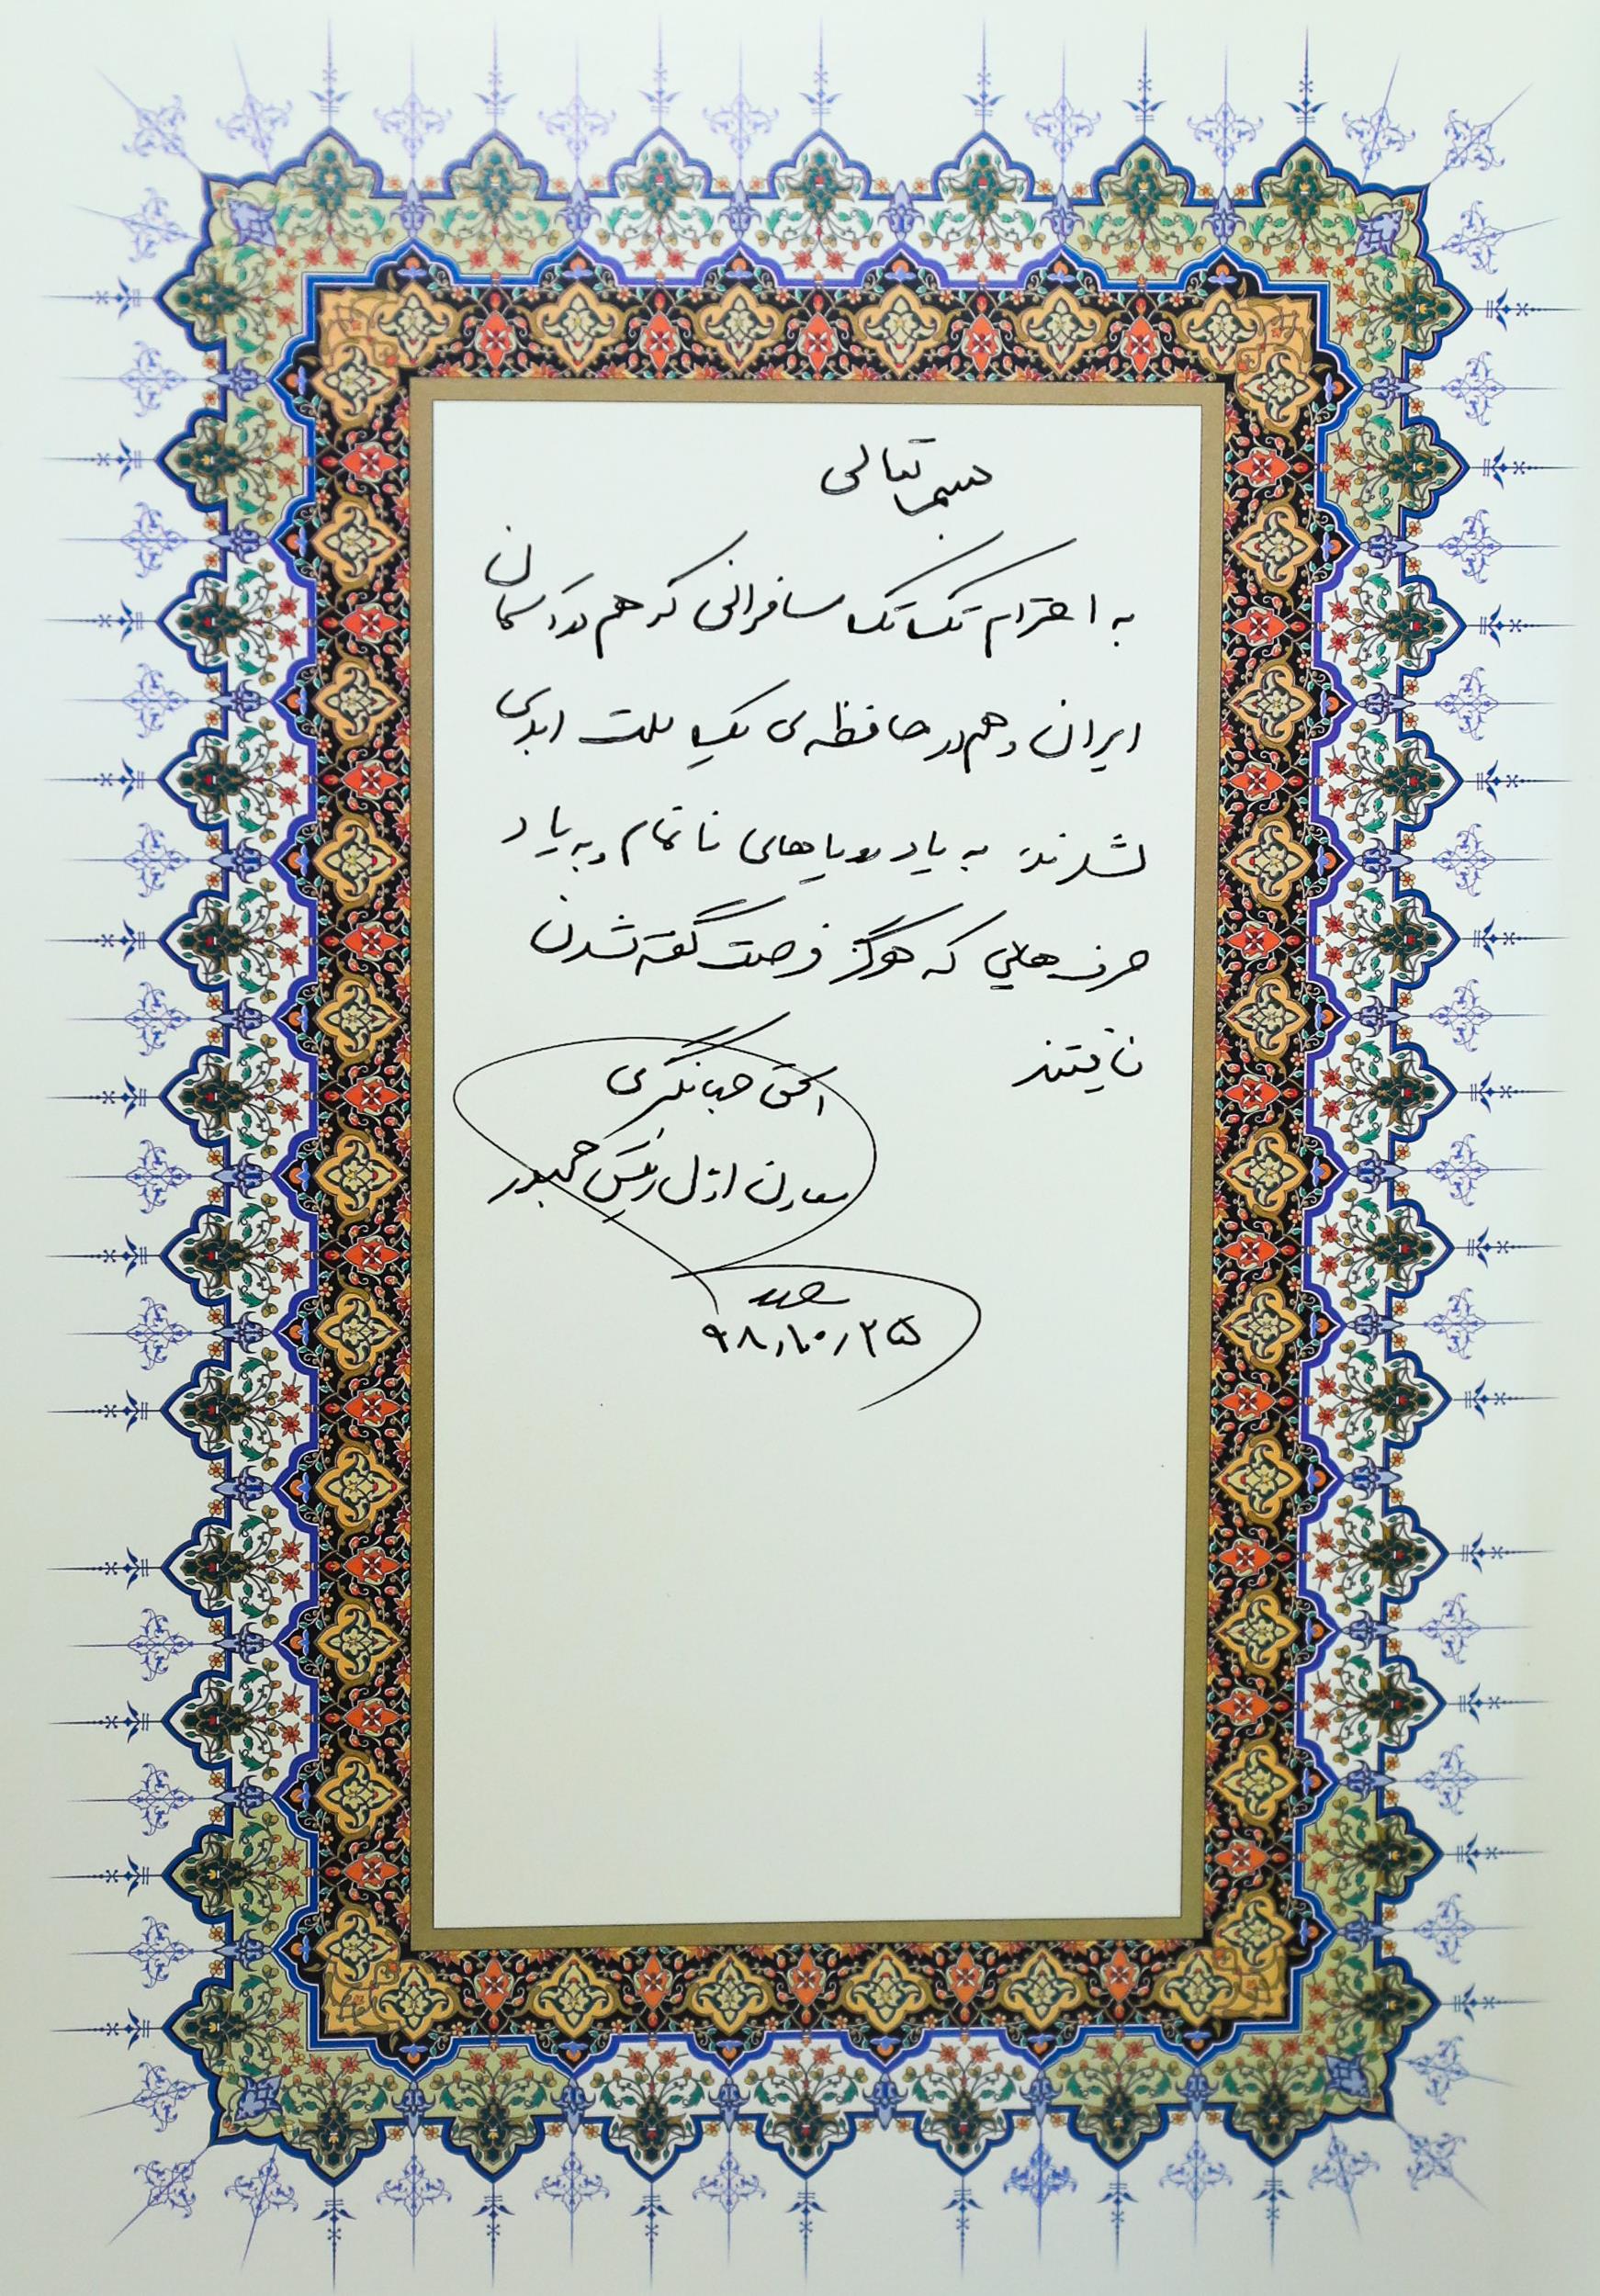 بسمه تعالی
به احترام تک تک مسافرانی که هم در آسمان
ایران و هم در حافظه ی یک ملت ابدی
شدند. به یاد رویاهای ناتمام و به یاد
حرف هایی که هرگز فرصت گفته شدن
نیافتند
اسحق جهانگیری
معاون اول رئیس جمهور
۹۸/۱۰/۲۵